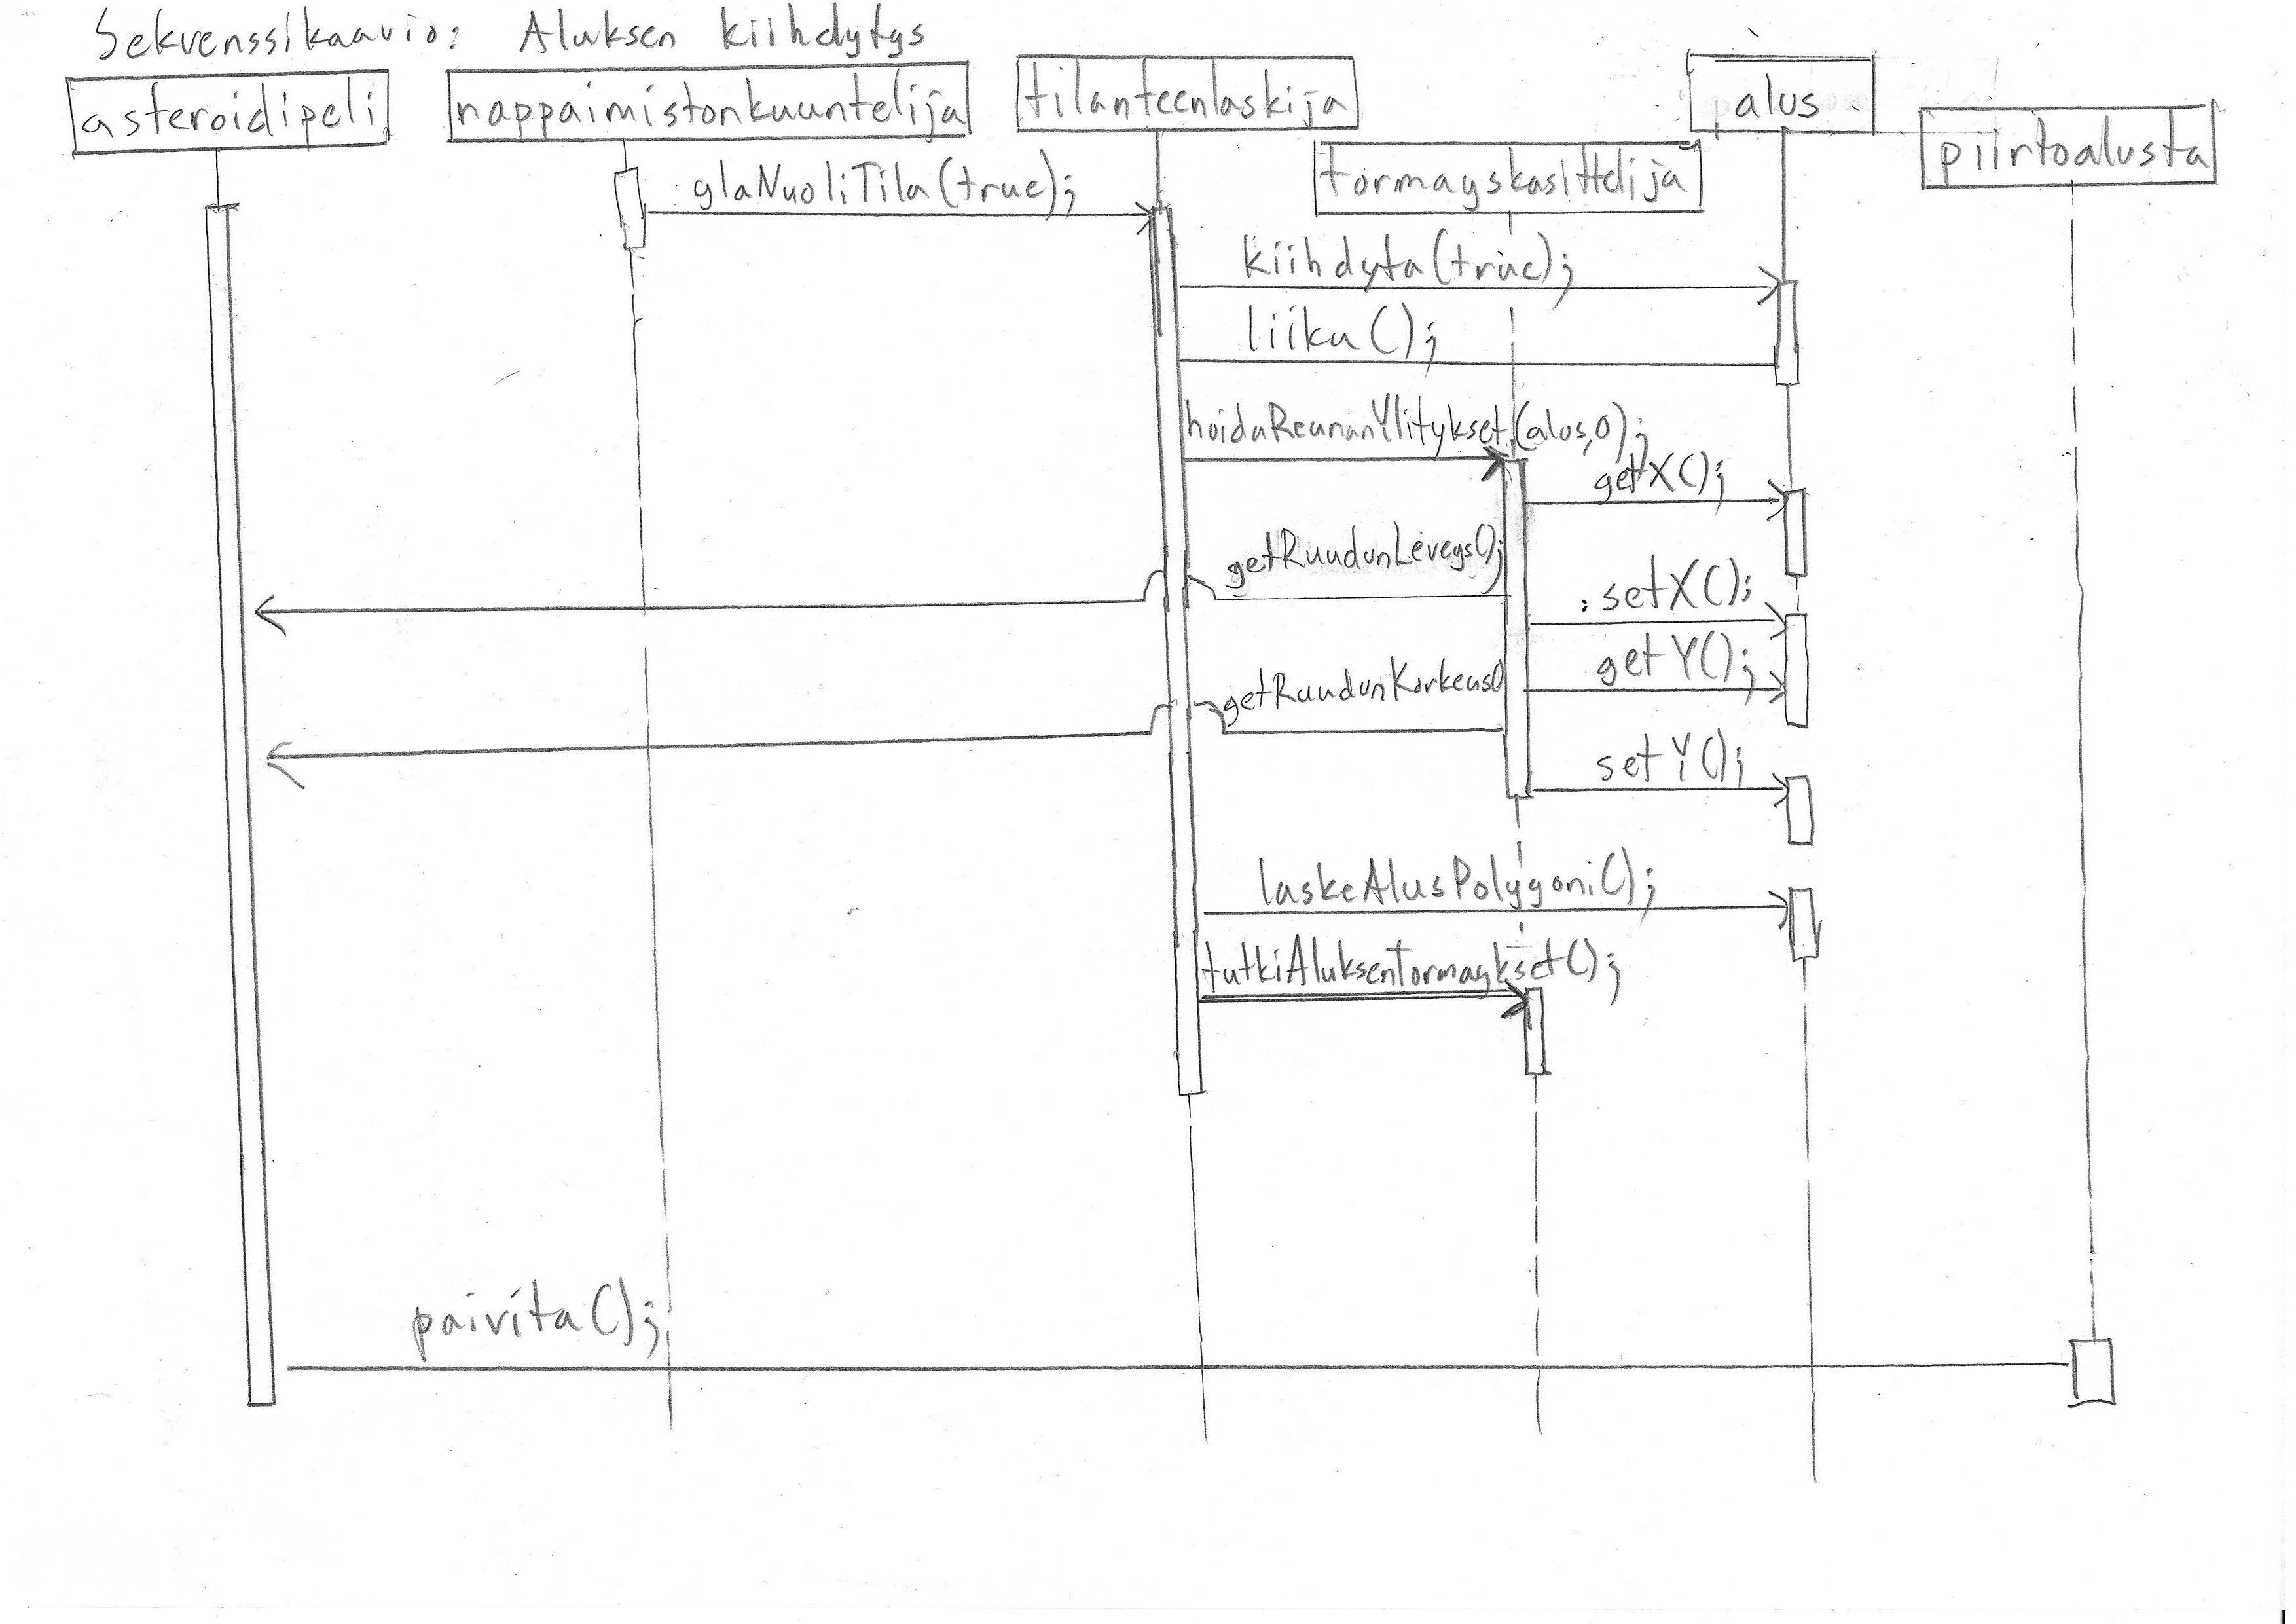 Sekvenssikaavio: Aluksen kiihdytys
asteroidipeli
nappaimistonkuuntelija
tilanteenlaskija
tormayskasittelija
alus
piirtoalusta
ylaNuoliTila(true);
kiihdyta(true);
liiku();
hoidaReunanYlitykset(alus,0);
getX();
getRuudunLeveys();
setX();
getY();
getRuudunKorkeus()
setY();
laskeAlusPolygoni();
tutkiAluksenTormaykset();
paivita();